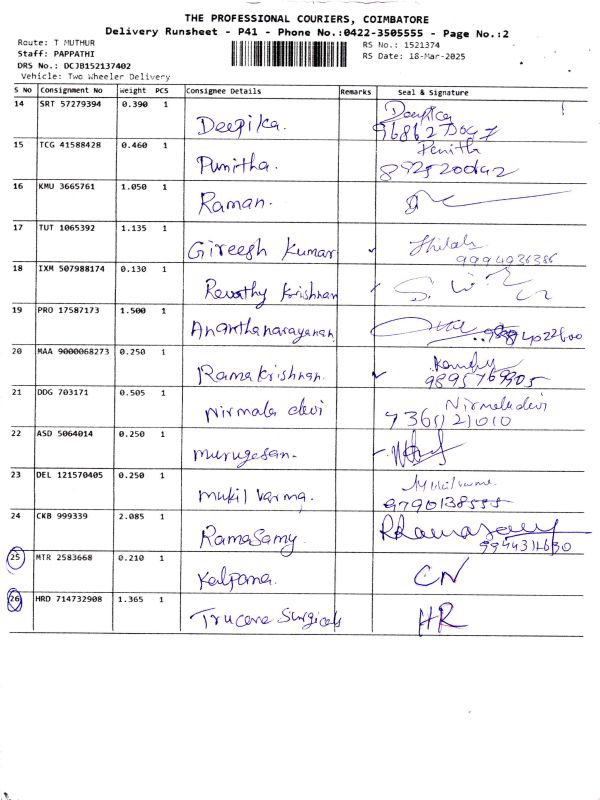 THE PROFESSIONAL COURIERS, COIMBATORE
Delivery Runsheet - P41 - Phone No.:0422-3505555 - Page No.:2
Route: T MUTHUR
RS No.: 1521374
Staff: PAPPATHI
RS Date: 18-Mar-2025
DRS No.: DCJB152137402
Vehicle: Two Wheeler Delivery
S No Consignment No Weight PCS Consignee Details Remarks Seal & Signature
14 SRT 57279394 0.390 1
Deepika. Deepika
15 TCG 41588428 0.460 1 Punitha
Punitha. 8925200692
16 KMU 3665761 1.050 1
Raman.
17 TUT 1065392 1.135 1
Gireesh Kumar
9994936386
18 IXM 507988174 0.130 1
Revathy Krishnan
19 PRO 17587173 1.500 1
Ananthanarayanan.
20 MAA 9000068273 0.250 1
Rama Krishnan. 9895769905
21 DDG 703171 0.505 1 Nirmaladevi
Nirmala devi 7361121010
22 ASD 5064014 0.250 1
murugesan.
23 DEL 121570405 0.250 1
mukil varma. 9790138555
24 CKB 999339 2.085 1 RRamasamy
RamaSamy.
25 MTR 2583668 0.210 1
Kalpana. CN
26 HRD 714732908 1.365 1
Trucare Surgicals HR